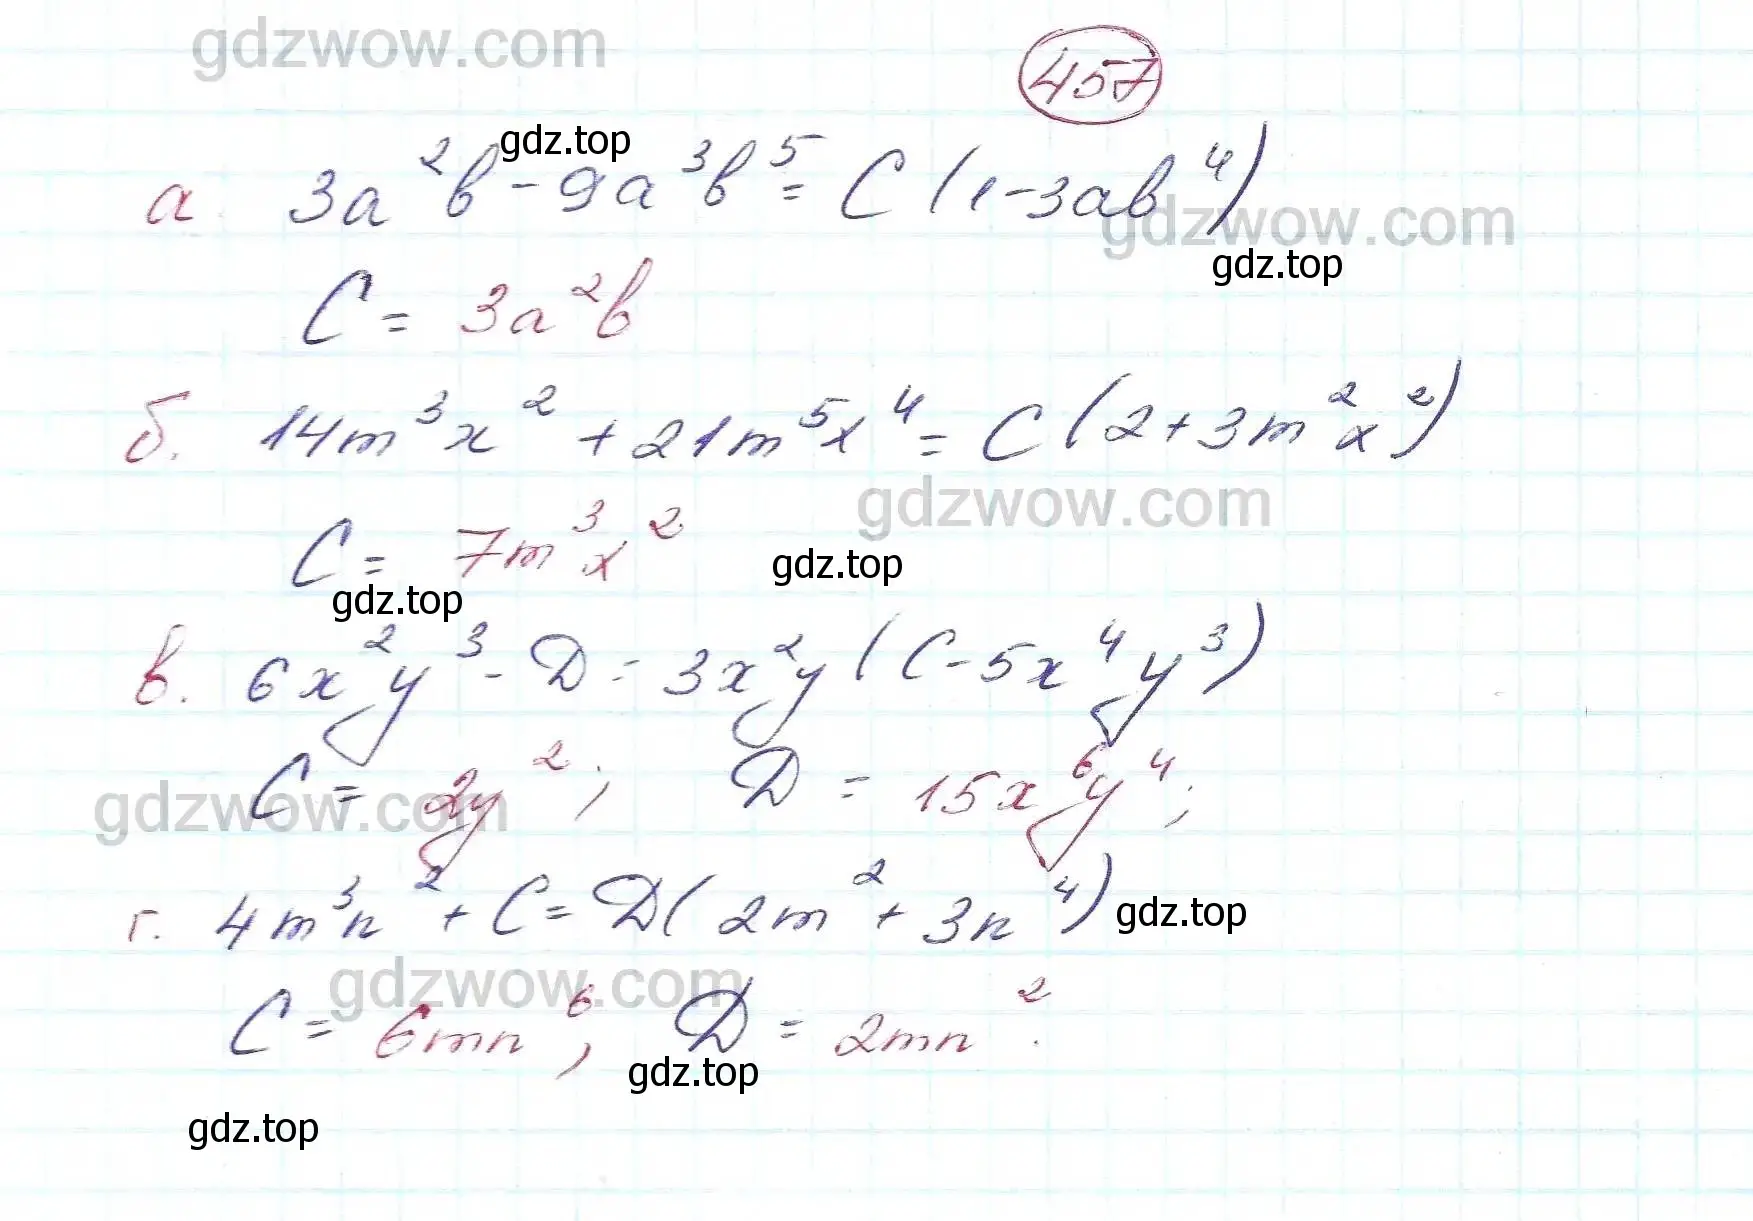 gdzwow.com
457
gdz.top
а. 3a²b - 9a³b⁵ = C(1 - 3ab⁴)
gdzwow.com
gdz.top
C = 3a²b
б. 14m³x² + 21m⁵x⁴ = C(2 + 3m²x²)
gdzwow.com
C = 7m³x²
gdz.top
gdz.top
в. 6x²y³ - D = 3x²y(C - 5x⁴y³)
gdzwow.com
C = 2y²; D = 15x⁶y⁴;
г. 4m³n² + C = D(2m² + 3n⁴)
gdz.top
gdzwow.com
C = 6mn⁶; D = 2mn².
gdz.top
gdz.top